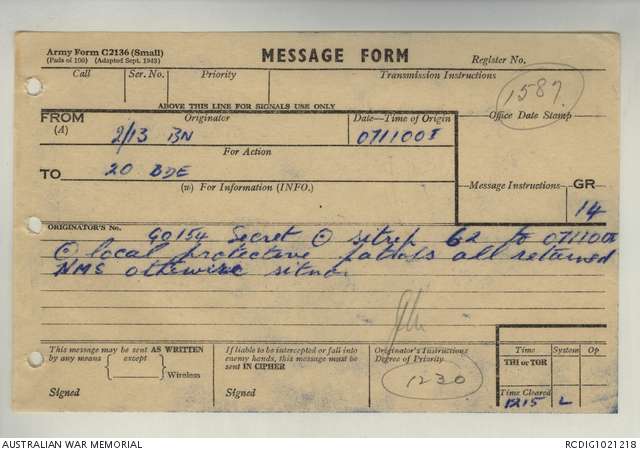 Army Form C2136 (Small)
(Pads of 100) (Adapted Sept. 1943)
MESSAGE FORM
Register No.
Call Ser. No. Priority Transmission Instructions
1587.
ABOVE THIS LINE FOR SIGNALS USE ONLY
FROM Originator Date—Time of Origin Office Date Stamp
(A) 2/13 BN 071100I
For Action
TO 20 BDE
(w) For Information (INFO.)
Message Instructions GR
14
ORIGINATOR'S No.
GO154 Secret sitrep 62 to 071100I
local protective patrols all returned
NMS otherwise sitnor
This message may be sent AS WRITTEN
by any means except
Wireless
Signed
If liable to be intercepted or fall into
enemy hands, this message must be
sent IN CIPHER
Signed
Originator's Instructions
Degree of Priority
1230
Time System Op
THI or TOR
Time Cleared
1215 L
AUSTRALIAN WAR MEMORIAL
RCDIG1021218